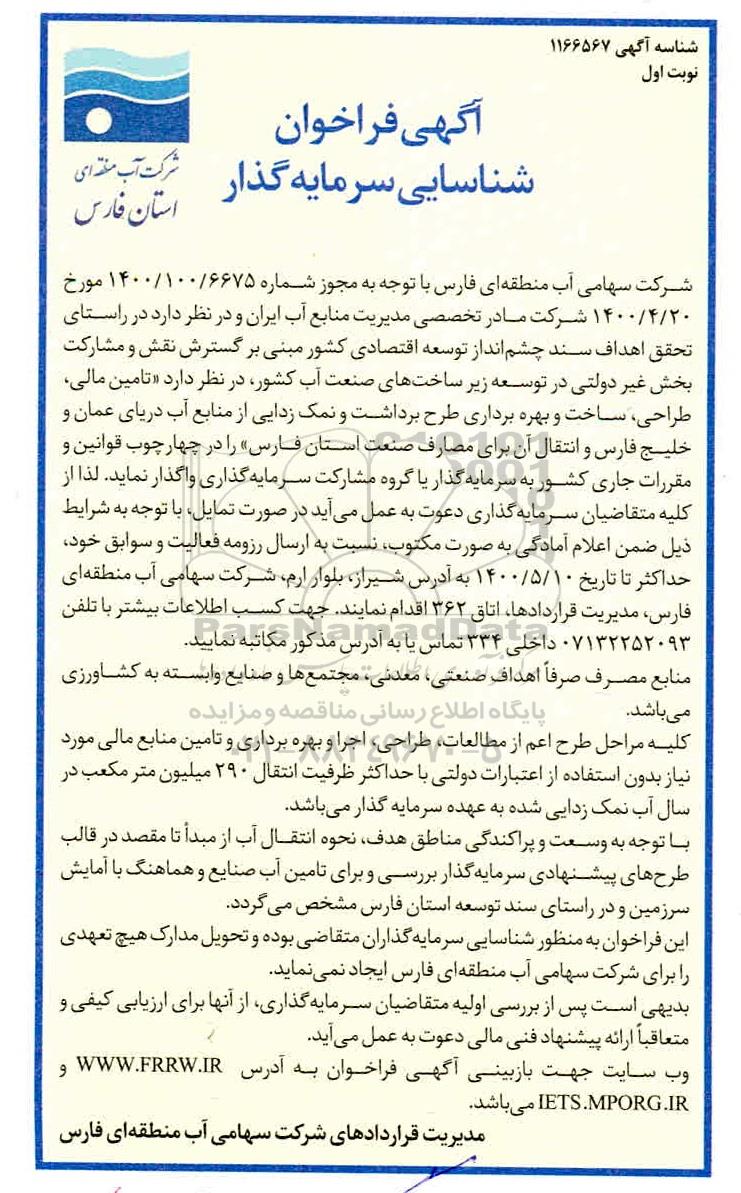 شناسه آگهی ۱۱۶۶۵۶۷
نوبت اول
آگهی فراخوان
شناسایی سرمایه‌گذار
شرکت آب منطقه‌ای
استان فارس
شرکت سهامی آب منطقه‌ای فارس با توجه به مجوز شماره ۱۴۰۰/۱۰۰/۶۶۷۵ مورخ
۱۴۰۰/۴/۲۰ شرکت مادر تخصصی مدیریت منابع آب ایران و در نظر دارد در راستای
تحقق اهداف سند چشم‌انداز توسعه اقتصادی کشور مبنی بر گسترش نقش و مشارکت
بخش غیر دولتی در توسعه زیر ساخت‌های صنعت آب کشور، در نظر دارد «تامین مالی،
طراحی، ساخت و بهره برداری طرح برداشت و نمک زدایی از منابع آب دریای عمان و
خلیج فارس و انتقال آن برای مصارف صنعت استان فارس» را در چهارچوب قوانین و
مقررات جاری کشور به سرمایه‌گذار یا گروه مشارکت سرمایه‌گذاری واگذار نماید. لذا از
کلیه متقاضیان سرمایه‌گذاری دعوت به عمل می‌آید در صورت تمایل، با توجه به شرایط
ذیل ضمن اعلام آمادگی به صورت مکتوب، نسبت به ارسال رزومه فعالیت و سوابق خود،
حداکثر تا تاریخ ۱۴۰۰/۵/۱۰ به آدرس شیراز، بلوار ارم، شرکت سهامی آب منطقه‌ای
فارس، مدیریت قراردادها، اتاق ۳۶۲ اقدام نمایند. جهت کسب اطلاعات بیشتر با تلفن
۰۷۱۳۲۲۵۲۰۹۳ داخلی ۳۳۴ تماس یا به آدرس مذکور مکاتبه نمایید.
ParsNamadData
منابع مصرف صرفاً اهداف صنعتی، معدنی، مجتمع‌ها و صنایع وابسته به کشاورزی
می‌باشد.
پایگاه اطلاع رسانی مناقصه و مزایده
کلیه مراحل طرح اعم از مطالعات، طراحی، اجرا و بهره برداری و تامین منابع مالی مورد
نیاز بدون استفاده از اعتبارات دولتی با حداکثر ظرفیت انتقال ۲۹۰ میلیون متر مکعب در
۰۲۱-۸۸۳۴۹۶۷۰-۵
سال آب نمک زدایی شده به عهده سرمایه گذار می‌باشد.
با توجه به وسعت و پراکندگی مناطق هدف، نحوه انتقال آب از مبدأ تا مقصد در قالب
طرح‌های پیشنهادی سرمایه‌گذار بررسی و برای تامین آب صنایع و هماهنگ با آمایش
سرزمین و در راستای سند توسعه استان فارس مشخص می‌گردد.
این فراخوان به منظور شناسایی سرمایه‌گذاران متقاضی بوده و تحویل مدارک هیچ تعهدی
را برای شرکت سهامی آب منطقه‌ای فارس ایجاد نمی‌نماید.
بدیهی است پس از بررسی اولیه متقاضیان سرمایه‌گذاری، از آنها برای ارزیابی کیفی و
متعاقباً ارائه پیشنهاد فنی مالی دعوت به عمل می‌آید.
وب سایت جهت بازبینی آگهی فراخوان به آدرس WWW.FRRW.IR و
IETS.MPORG.IR می‌باشد.
مدیریت قراردادهای شرکت سهامی آب منطقه‌ای فارس